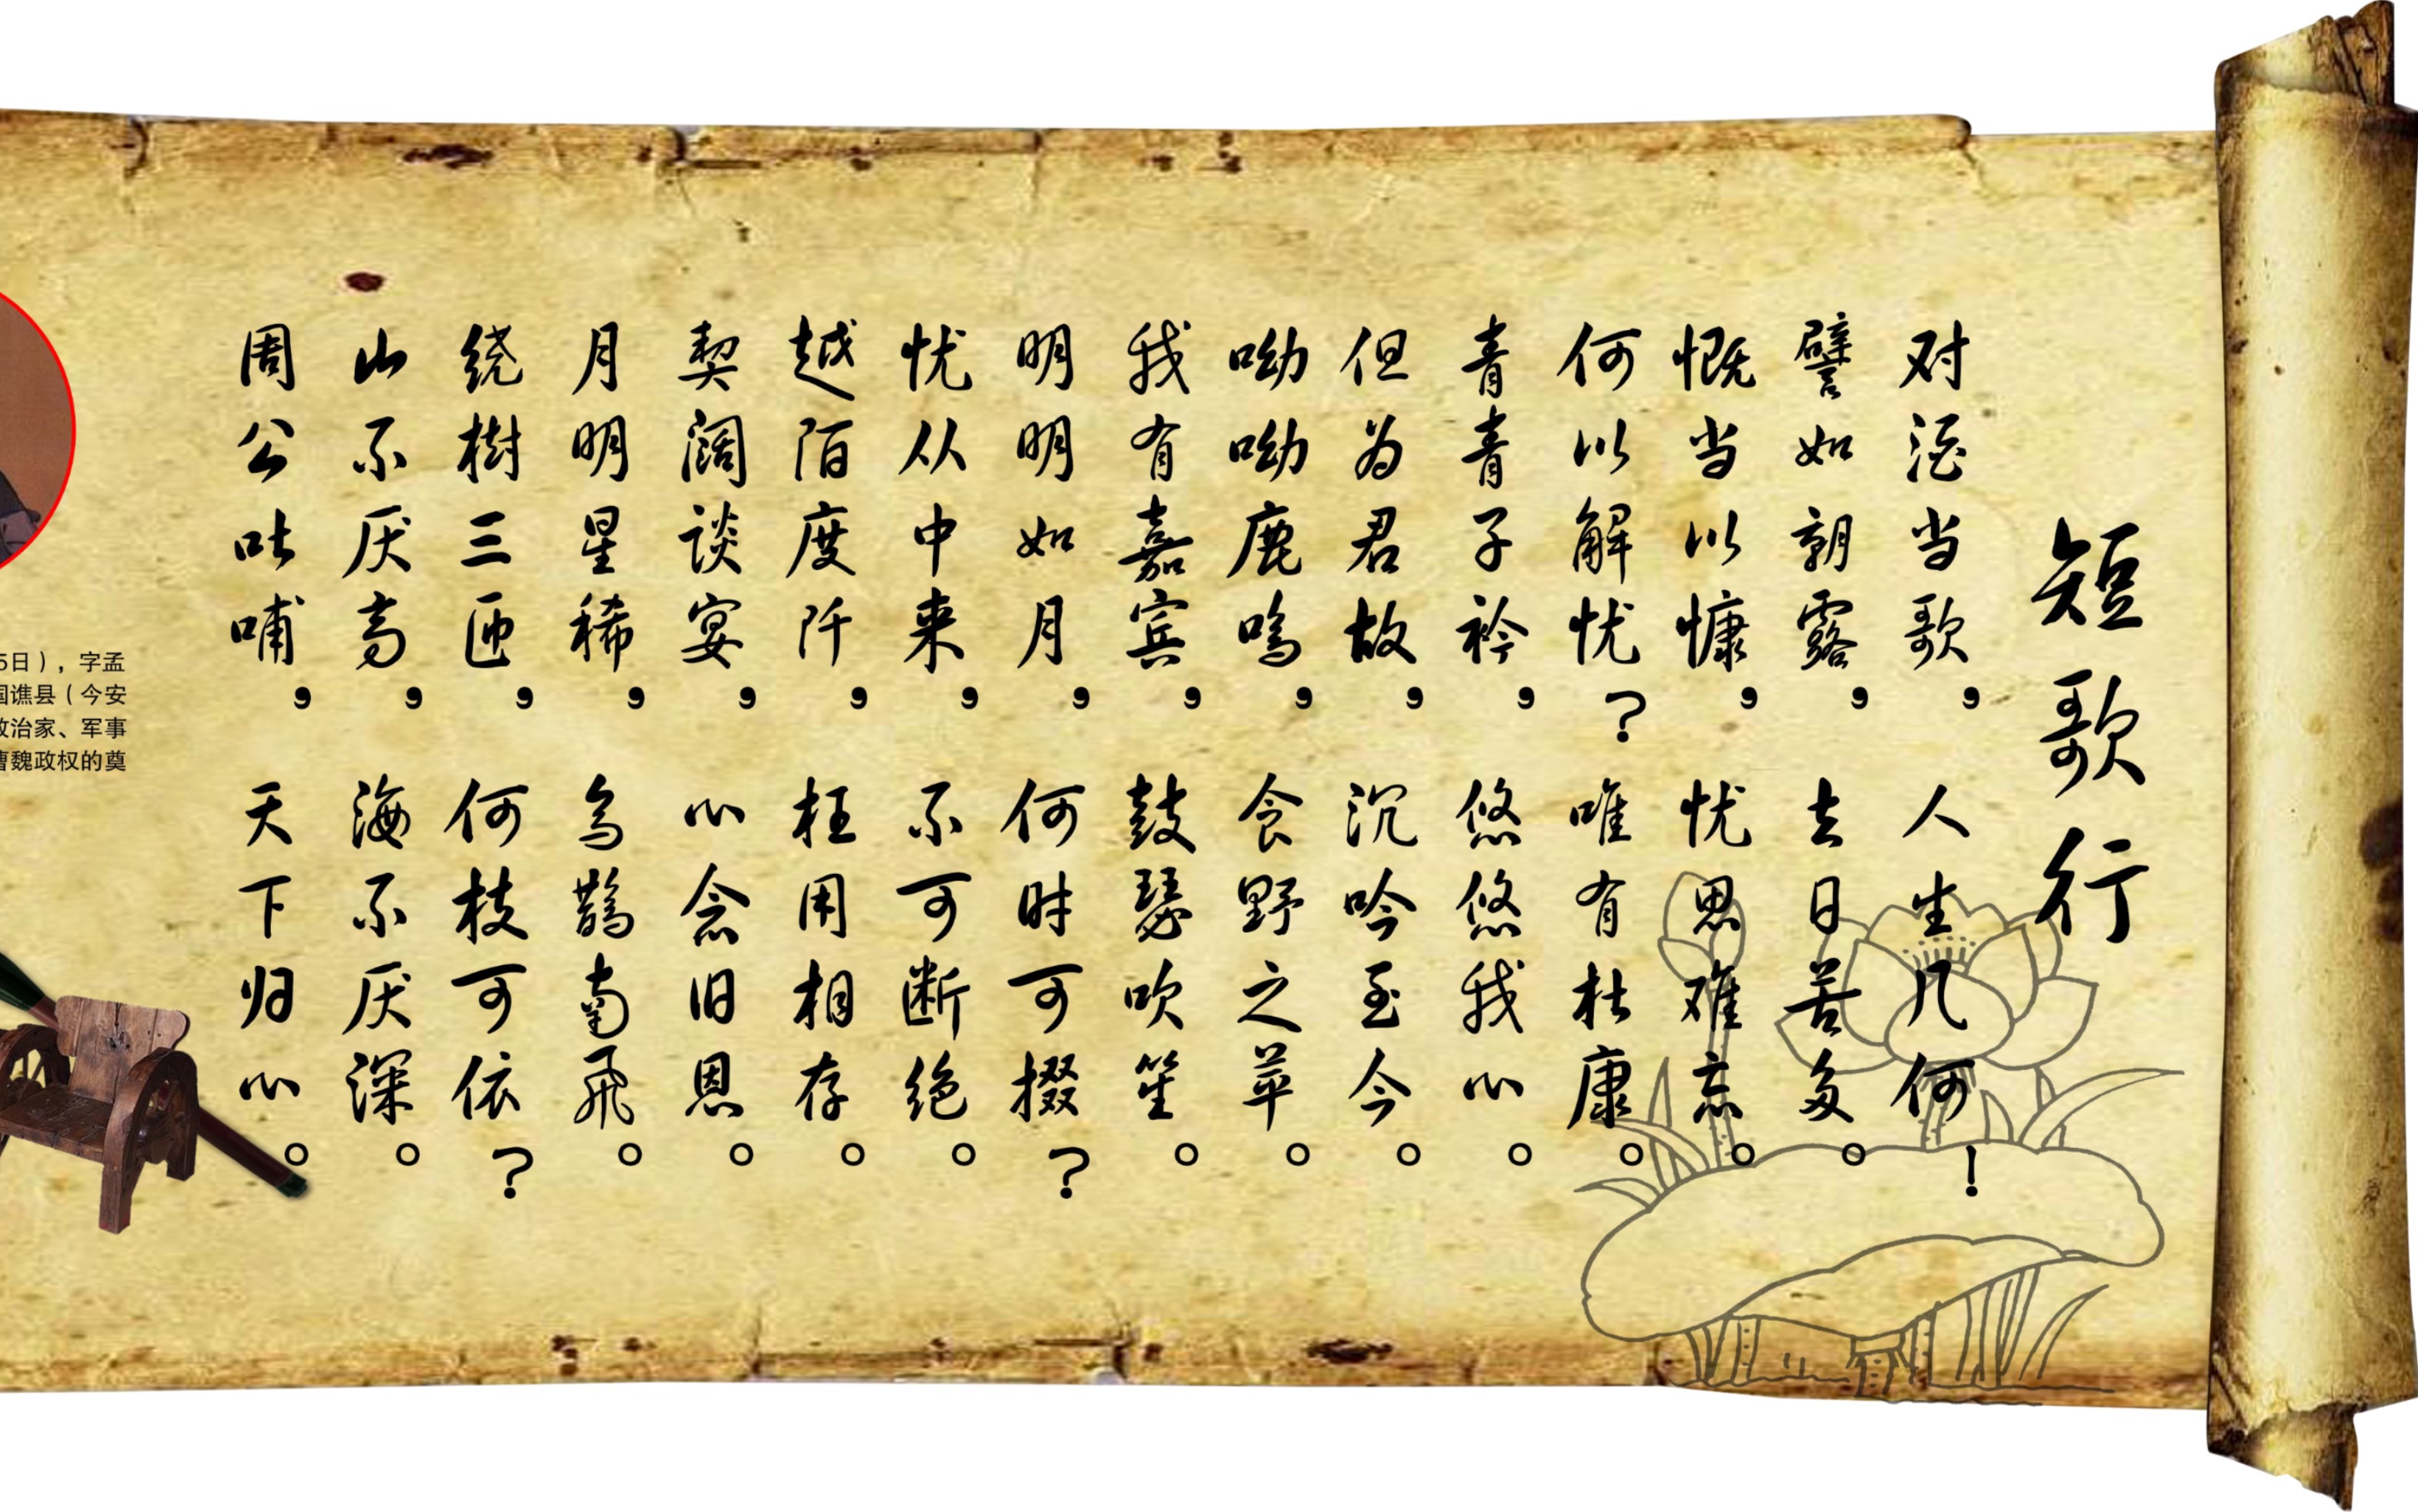 短歌行
对酒当歌，人生几何！
譬如朝露，去日苦多。
慨当以慷，忧思难忘。
何以解忧？唯有杜康。
青青子衿，悠悠我心。
但为君故，沉吟至今。
呦呦鹿鸣，食野之苹。
我有嘉宾，鼓瑟吹笙。
明明如月，何时可掇？
忧从中来，不可断绝。
越陌度阡，枉用相存。
契阔谈宴，心念旧恩。
月明星稀，乌鹊南飞。
绕樹三匝，何枝可依？
山不厌高，海不厌深。
周公吐哺，天下归心。
5日），字孟
国谯县（今安
政治家、军事
曹魏政权的奠